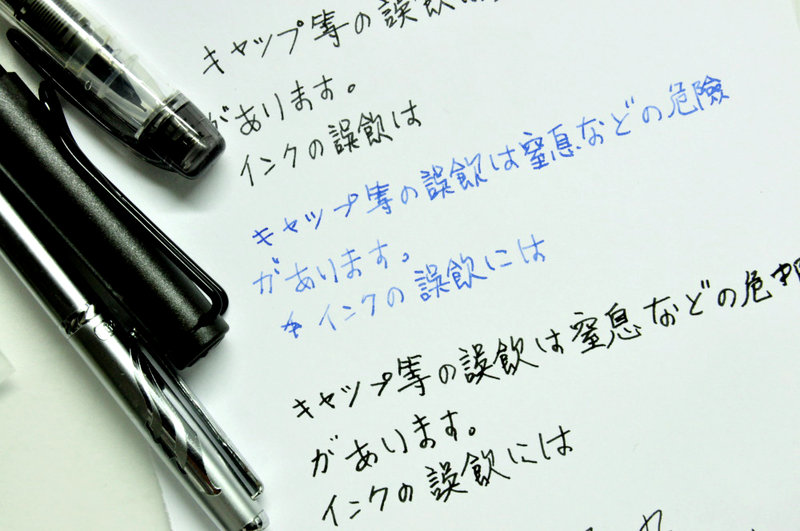 キャップ等の誤飲
があります。
インクの誤飲は
キャップ等の誤飲は窒息などの危険
があります。
インクの誤飲には
キャップ等の誤飲は窒息などの危
があります。
インクの誤飲には